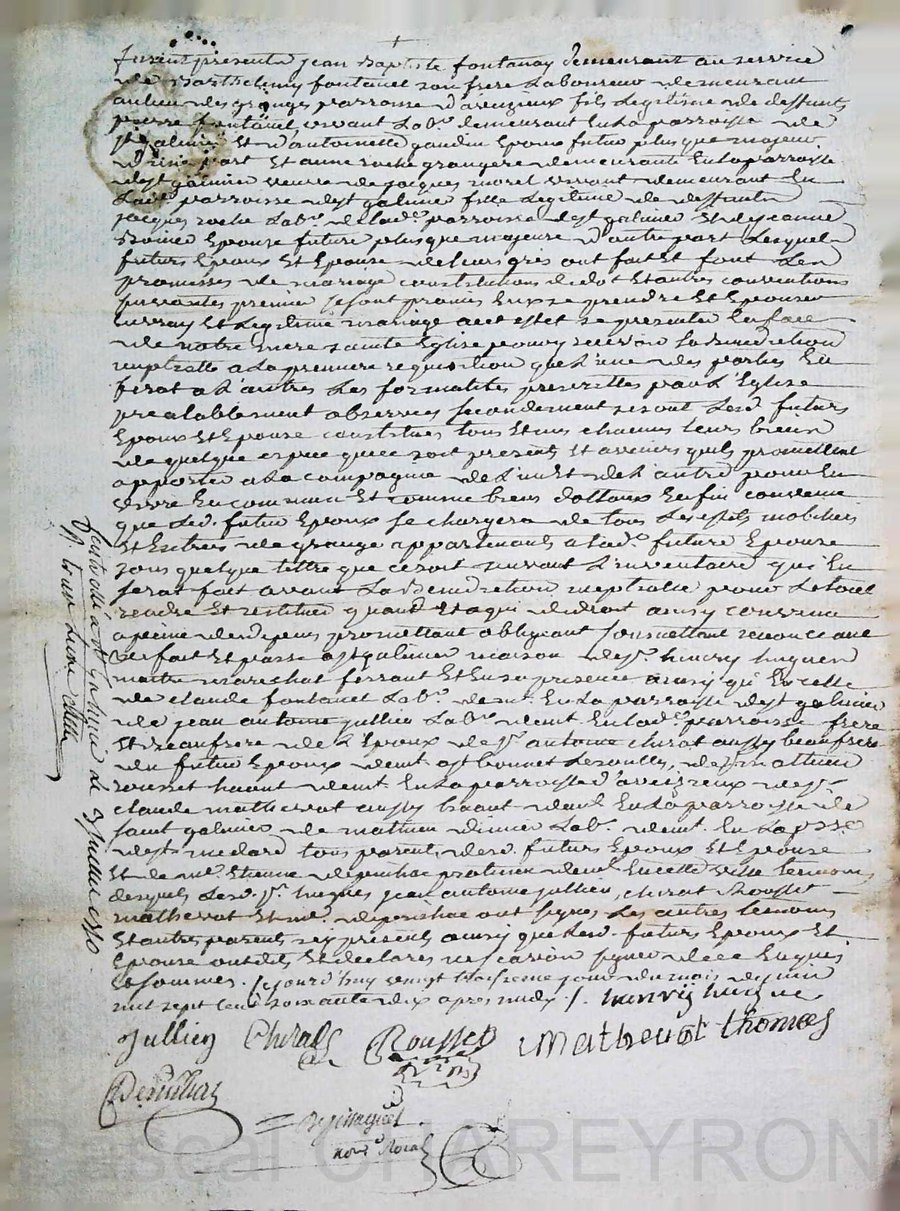 furent presents jean Baptiste fontanay demeurant au service
de Barthelemy fontanel son frere Laboureur demeurant
au lieu des granges parroisse d'aveizieux fils Legitime de deffunts
pierre fontanel, vivant Lab.r demeurant En La parroisse de
st galmier Et d'antoinette gaudin Epoux futur plus que majeur
d'une part Et anne roche grangere demeurante En La parroisse
de st galmier veuve de jacques morel vivant demeurant En
Lad.e parroisse de st galmier fille Legitime de deffunts
jacques roche Lab.r de Lad.e parroisse de st galmier Et de jeanne
Epouse future plus que majeure d'autre part Lesquels
futurs Epoux Et Epouse de leurs gres ont fait Et font Les
promesses de mariage constitutions de dot Et autres conventions
suivantes premier se sont promis Eux se prendre Et Epouser
En vray Et Legitime mariage a cet effet se presenter En face
de notre mere sainte Eglise pour y recevoir La benediction
nuptialle a La premiere requisition que L'une des parties En
ferat a L'autre Les formalites prescrittes par L'Eglise
prealablement observees secondement se sont Lesd. futurs
Epoux Et Epouse constitues tous Et uns chacuns leurs biens
de quelque espece que ce soit presents Et avenirs quils promettent
apporter a La compagnie de L'un Et de L'autre pour En
vivre En commun Et comme biens dottaux Enfin convenu
que Led. futur Epoux se chargera de tous Les effets mobiliers
Et Entrees de grange appartenants a Lad.e future Epouse
sous quelque tittre que ce soit suivant L'inventaire qui En
serat fait avant La Benediction nuptialle pour Le tout
rendre Et restituer quand Et a qui de droit ainsy convenu
a peine de depens promettant obligeant soumettant renonceant
fait Et passe a st galmier maison de s.r henry hugues
maitre marechal ferrant Et En sa presence ainsy qu'En celle
de claude fontanel Lab.r dem.t En La parroisse de st galmier
de jean antoine jullien Lab.r demt En Lad.e parroisse frere
Et Beaufrere de L'Epoux de s.r antoine chirat aussy beaufrere
du futur Epoux demt a st bonnet Les oulles, de s.r mathieu
rousset demt En La parroisse d'aveizieux de s.r
claude mathevot aussy demt En La parroisse de
saint galmier de mathieu Lab.r demt En La psse
de st medard tous parents desd. futurs Epoux Et Epouse
Et de me Etienne depinhac praticien demt En cette ville temoins
desquels Lesd. s.r hugues jean antoine jullien, chirat Rousset
mathevot Et me depinhac ont signes Les autres temoins
Et autres parents icy presents ainsy que Lesd. futurs Epoux Et
Epouse ont dits Et declares ne scavoir signer de ce Enquis
Et sommes. ce jourd'huy vingt troisieme jour du mois de juin
mil sept cent soixante dix apres midy /. henrij hugue
Jullien Chirat Rousset Mathevot thomas
Depinhac
not.e Royal
Controllé à St Galmier Le 3 juillet 1770
R. Livre
Pascal CHAREYRON